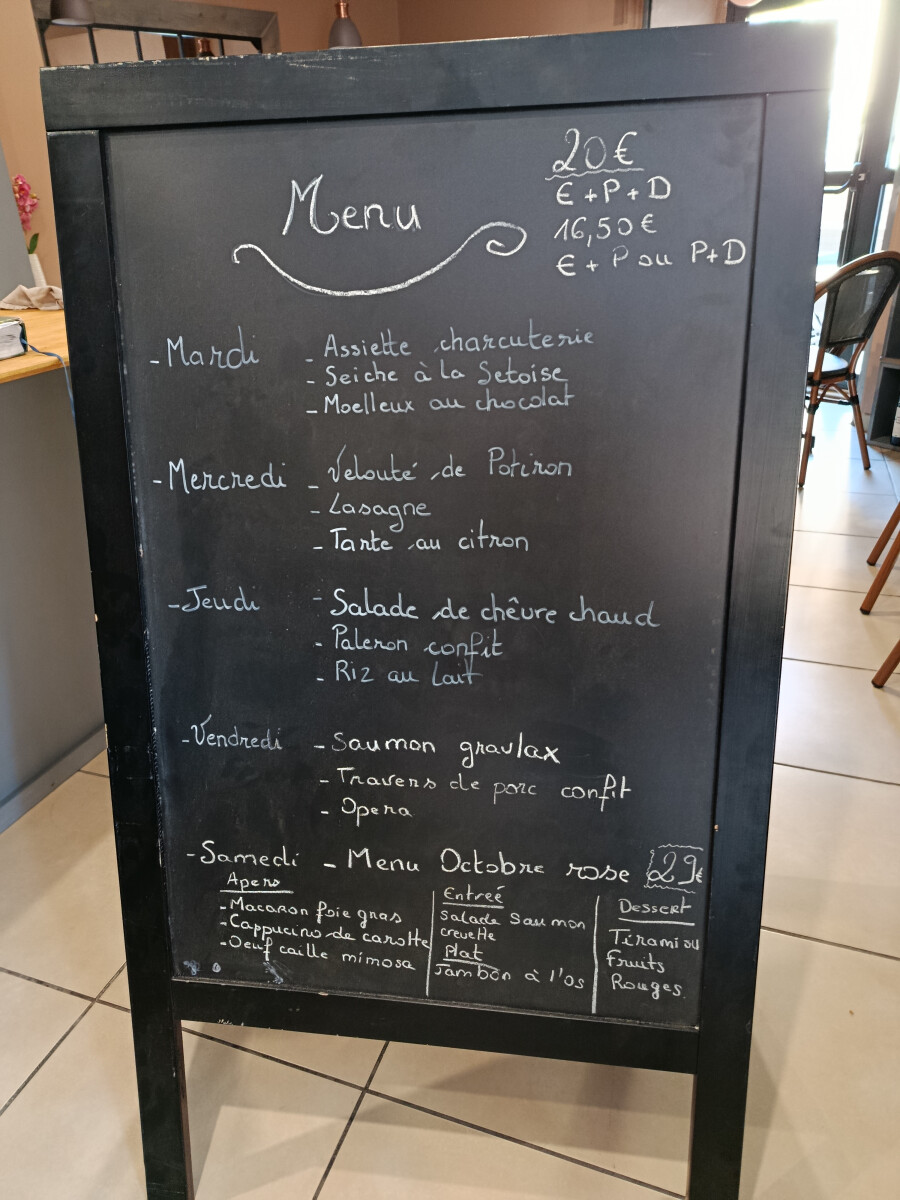 Menu
20€
€ + P + D
16,50€
€ + P ou P+D
- Mardi - Assiette charcuterie
- Seiche à la Setoise
- Moelleux au chocolat
- Mercredi - Velouté de Potiron
- Lasagne
- Tarte au citron
- Jeudi - Salade de chêvre chaud
- Paleron confit
- Riz au Lait
- Vendredi - Saumon gravlax
- Travers de porc confit
- Opera
- Samedi - Menu Octobre rose 29€
Apero
- Macaron foie gras
- Cappucino de carotte
- Oeuf caille mimosa
Entreé
Salade Saumon
crevette
Plat
Jambon à l'os
Dessert
Tiramisu
fruits
Rouges